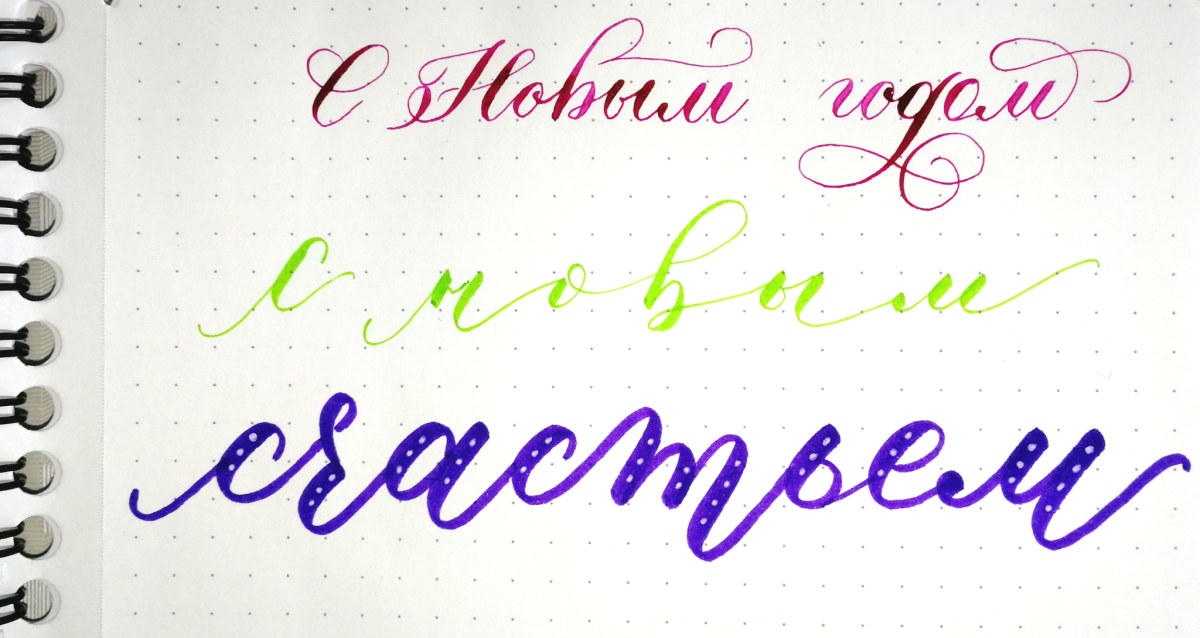 С Новым годом
с новым
счастьем